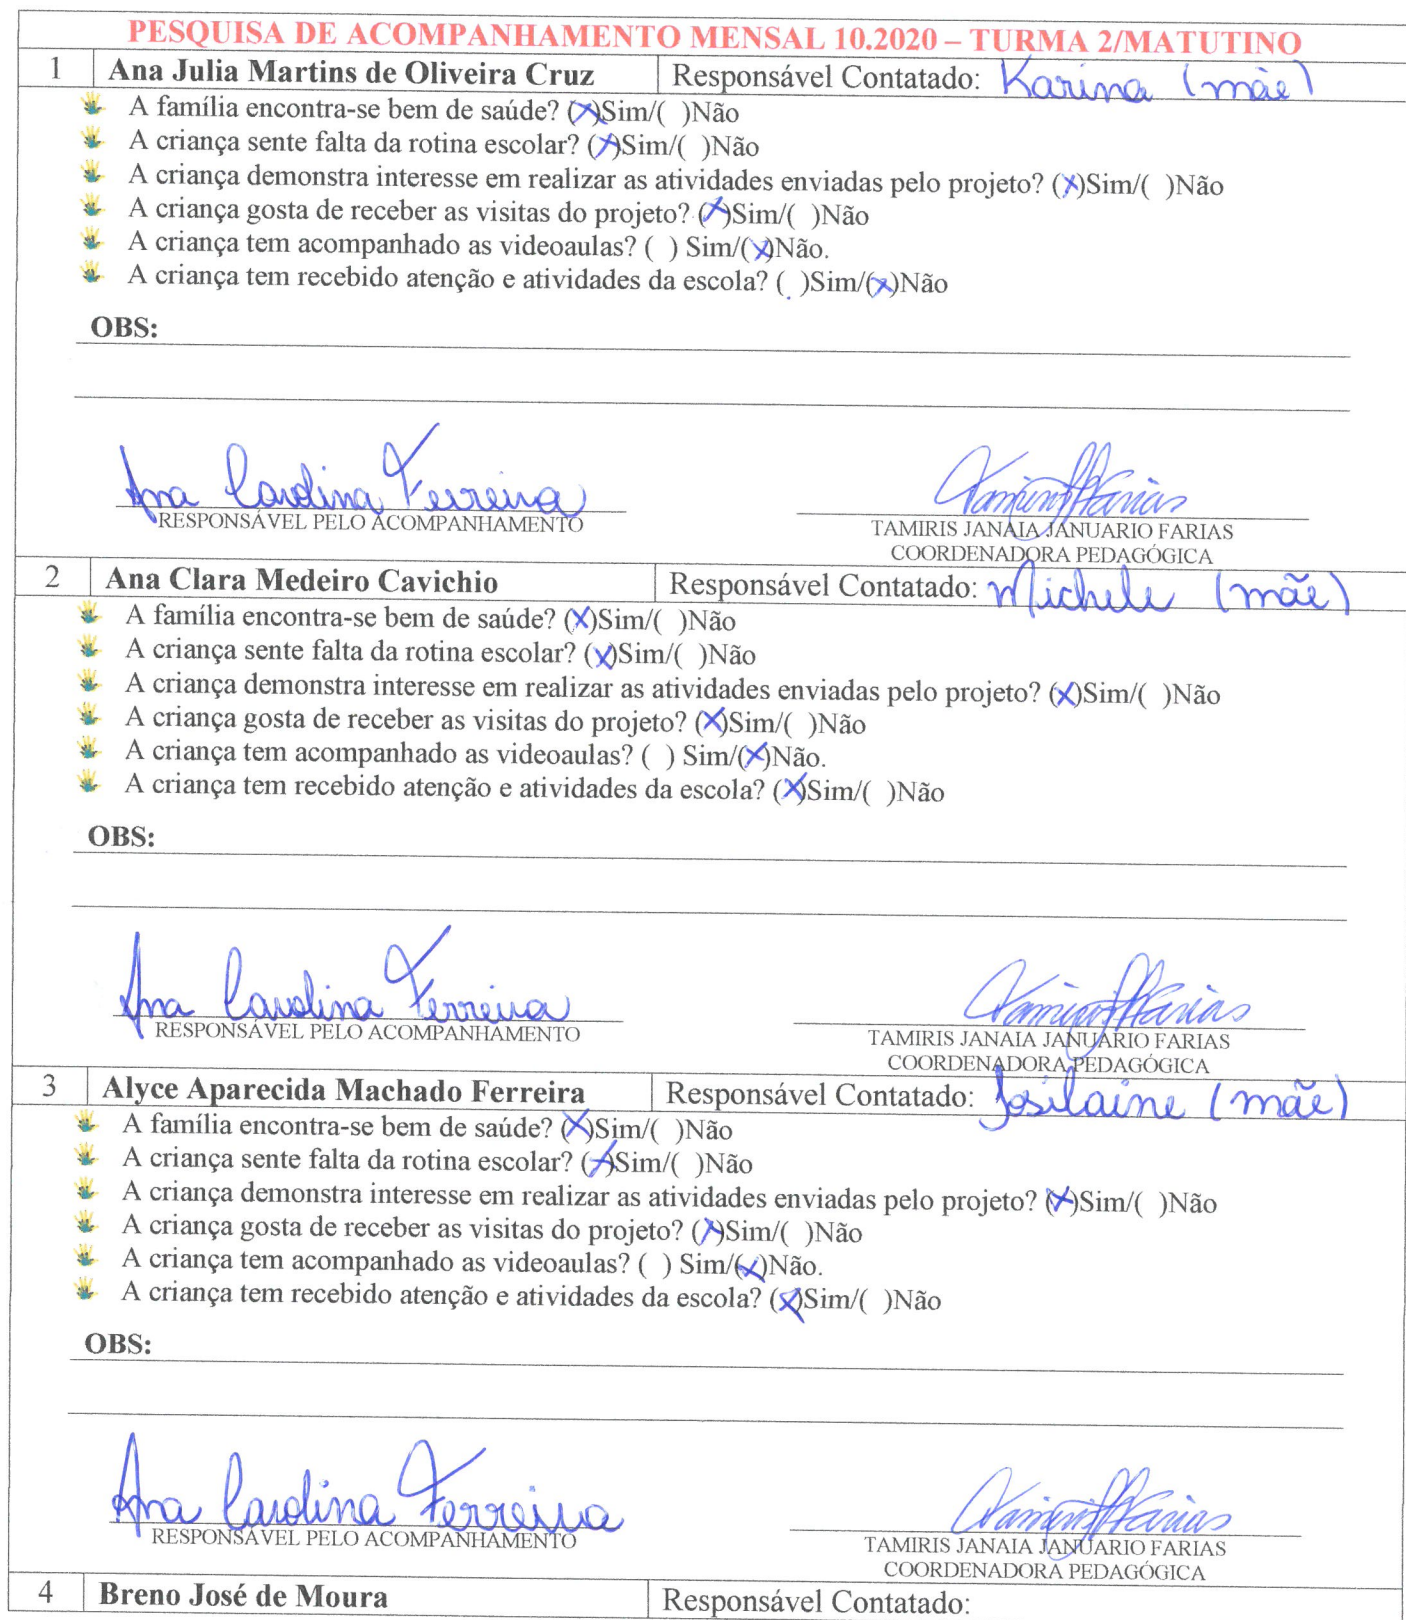 PESQUISA DE ACOMPANHAMENTO MENSAL 10.2020 – TURMA 2/MATUTINO
1 Ana Julia Martins de Oliveira Cruz Responsável Contatado: Karina (mãe)
A família encontra-se bem de saúde? (x)Sim/( )Não
A criança sente falta da rotina escolar? (x)Sim/( )Não
A criança demonstra interesse em realizar as atividades enviadas pelo projeto? (x)Sim/( )Não
A criança gosta de receber as visitas do projeto? (x)Sim/( )Não
A criança tem acompanhado as videoaulas? ( ) Sim/(x)Não.
A criança tem recebido atenção e atividades da escola? ( )Sim/(x)Não
OBS:
Ana Carolina Ferreira
RESPONSÁVEL PELO ACOMPANHAMENTO
TAMIRIS JANAIA JANUARIO FARIAS
COORDENADORA PEDAGÓGICA
2 Ana Clara Medeiro Cavichio Responsável Contatado: Michele (mãe)
A família encontra-se bem de saúde? (x)Sim/( )Não
A criança sente falta da rotina escolar? (x)Sim/( )Não
A criança demonstra interesse em realizar as atividades enviadas pelo projeto? (x)Sim/( )Não
A criança gosta de receber as visitas do projeto? (x)Sim/( )Não
A criança tem acompanhado as videoaulas? ( ) Sim/(x)Não.
A criança tem recebido atenção e atividades da escola? (x)Sim/( )Não
OBS:
Ana Carolina Ferreira
RESPONSÁVEL PELO ACOMPANHAMENTO
TAMIRIS JANAIA JANUARIO FARIAS
COORDENADORA PEDAGÓGICA
3 Alyce Aparecida Machado Ferreira Responsável Contatado: Josilaine (mãe)
A família encontra-se bem de saúde? (x)Sim/( )Não
A criança sente falta da rotina escolar? (x)Sim/( )Não
A criança demonstra interesse em realizar as atividades enviadas pelo projeto? (x)Sim/( )Não
A criança gosta de receber as visitas do projeto? (x)Sim/( )Não
A criança tem acompanhado as videoaulas? ( ) Sim/(x)Não.
A criança tem recebido atenção e atividades da escola? (x)Sim/( )Não
OBS:
Ana Carolina Ferreira
RESPONSÁVEL PELO ACOMPANHAMENTO
TAMIRIS JANAIA JANUARIO FARIAS
COORDENADORA PEDAGÓGICA
4 Breno José de Moura Responsável Contatado: